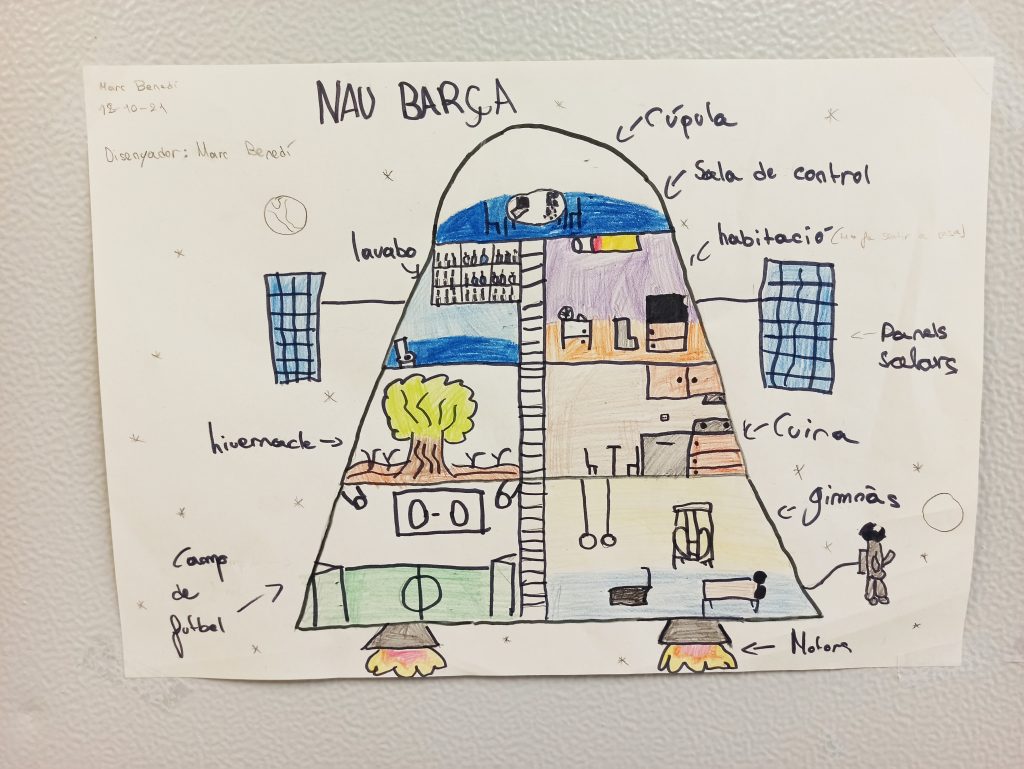 Marc Benedí
18-10-21
Disenyador: Marc Benedí
NAU BARÇA
Cúpula
Sala de control
lavabo
habitació
Panels
solars
hivernacle
Cuina
0-0
gimnàs
Camp
de
futbol
Motors